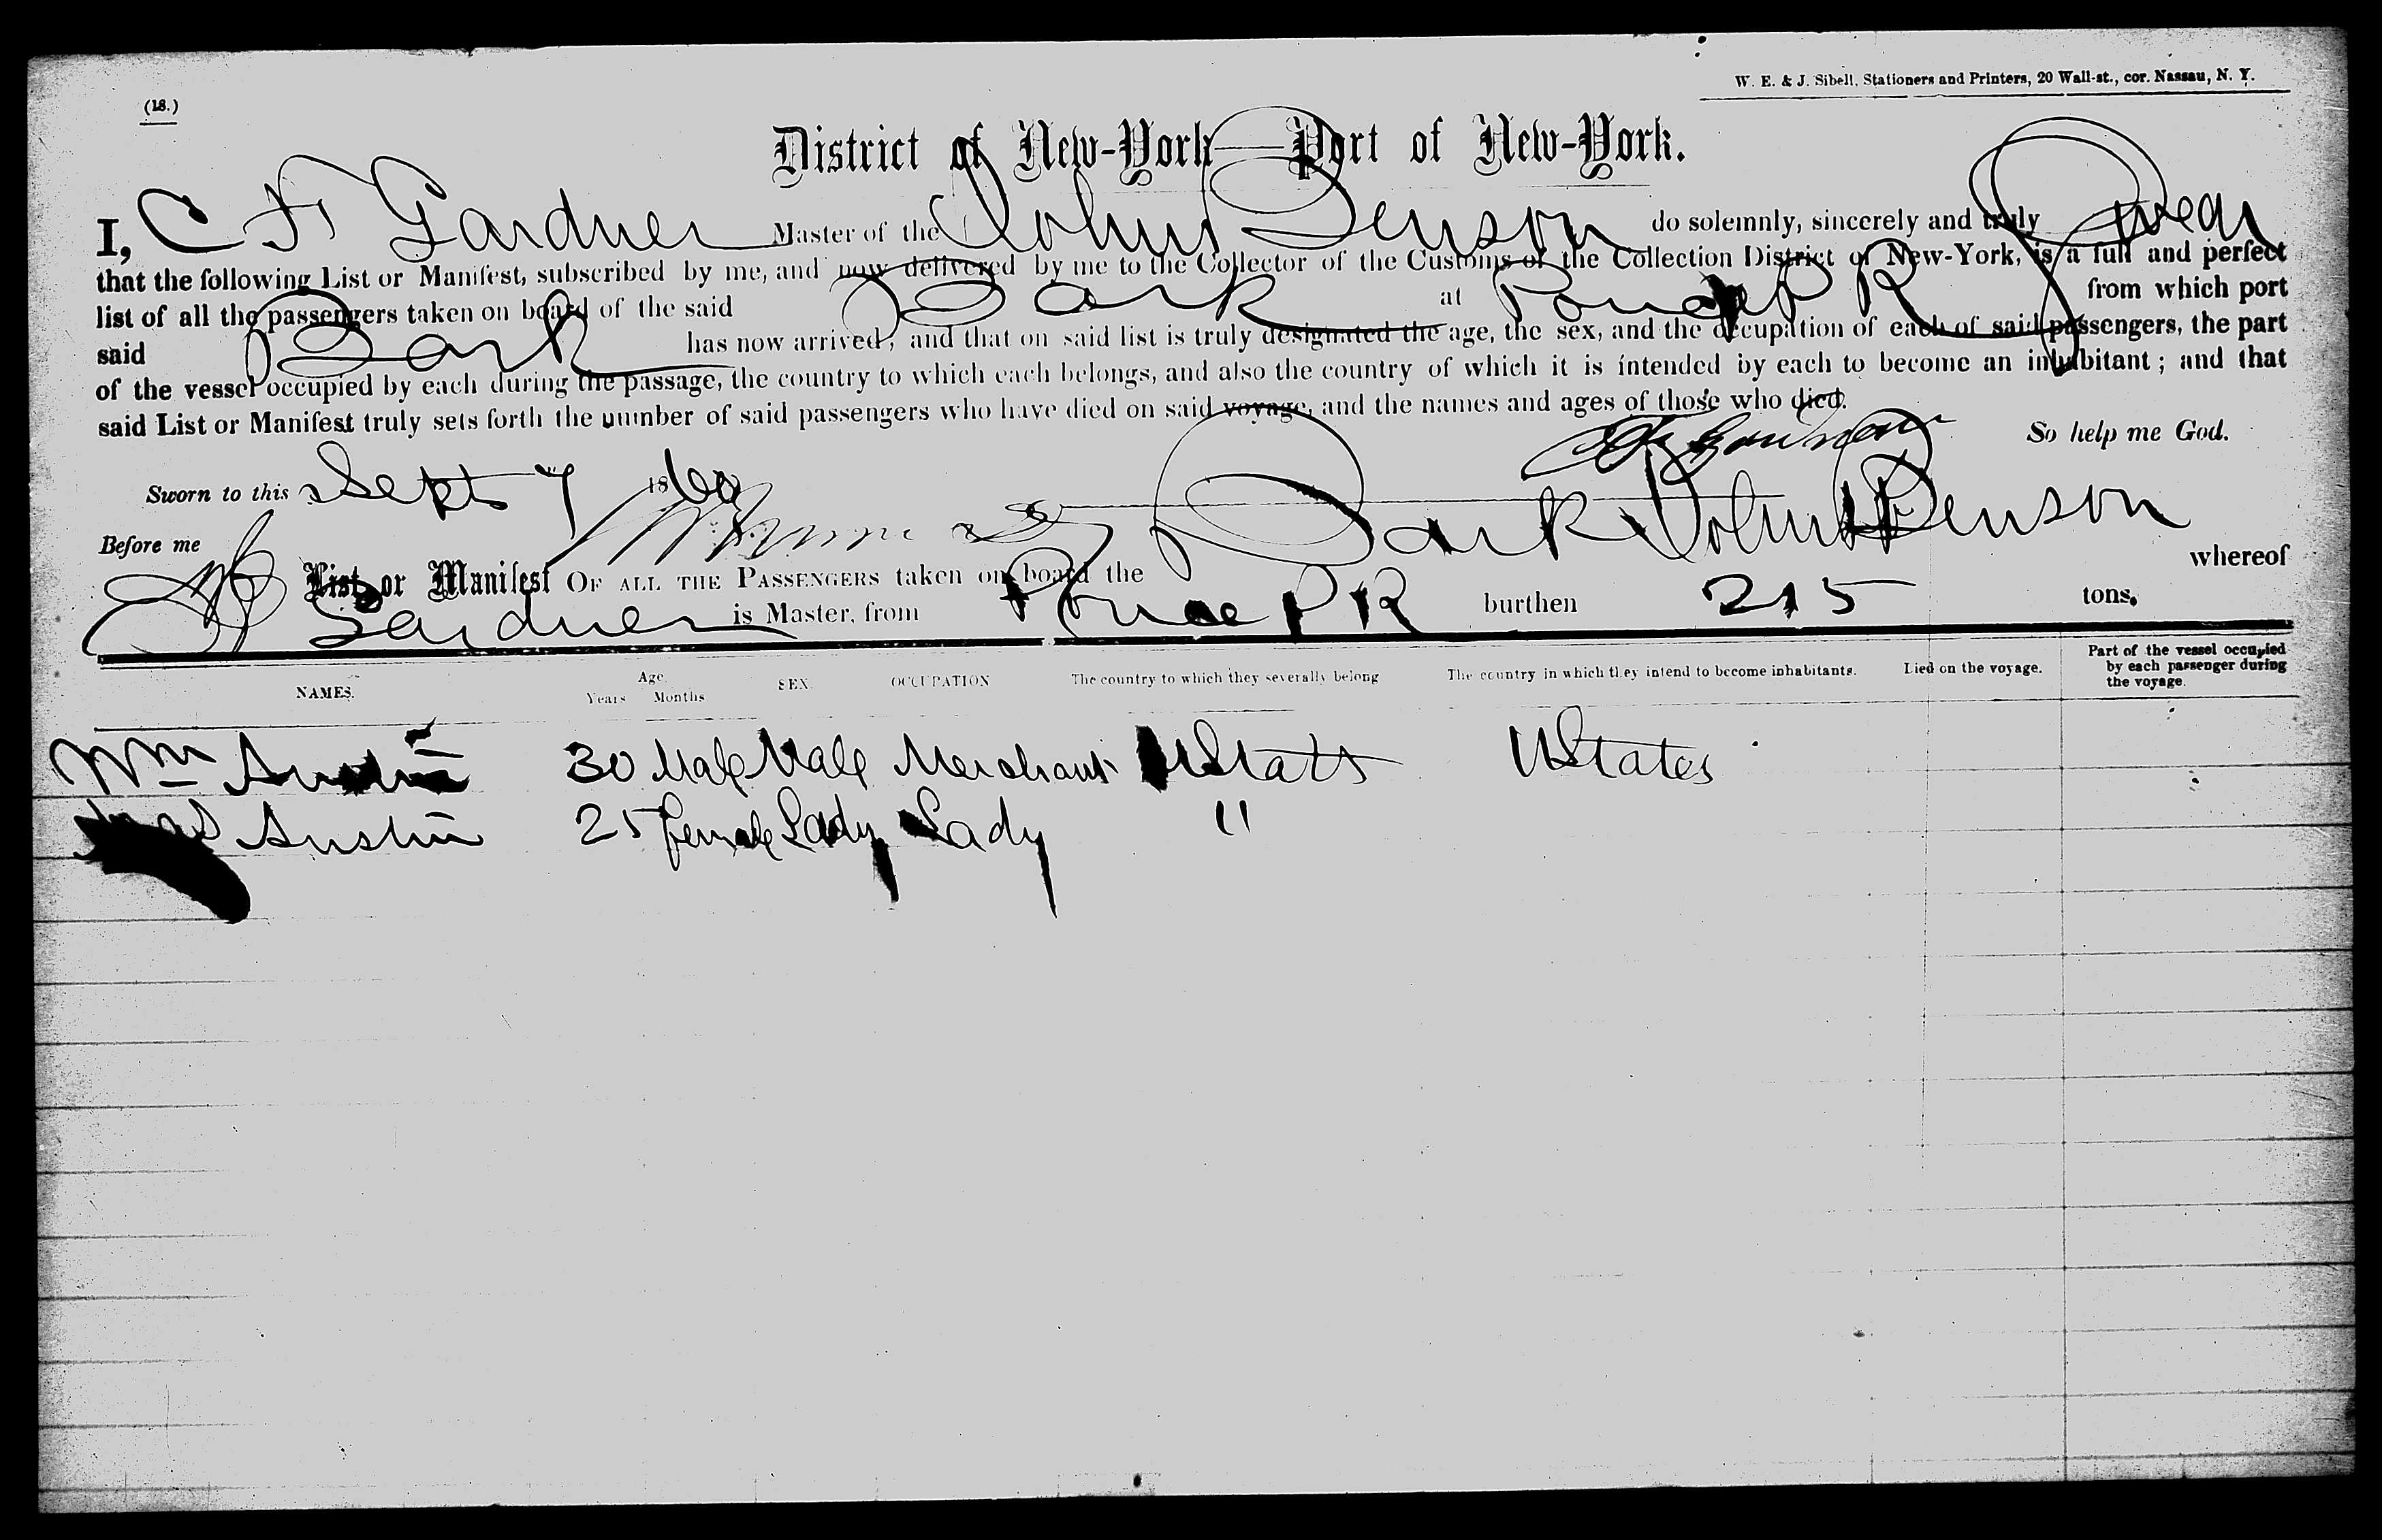 (18.)
W. E. & J. Sibell, Stationers and Printers, 20 Wall-st., cor. Nassau, N. Y.
District of New-York—Port of New-York.
I, C F Gardner Master of the John Benson do solemnly, sincerely and truly Swear
that the following List or Manifest, subscribed by me, and now delivered by me to the Collector of the Customs of the Collection District of New-York, is a full and perfect
list of all the passengers taken on board of the said Bark at Ponce P R from which port
said Bark has now arrived; and that on said list is truly designated the age, the sex, and the occupation of each of said passengers, the part
of the vessel occupied by each during the passage, the country to which each belongs, and also the country of which it is intended by each to become an inhabitant; and that
said List or Manifest truly sets forth the number of said passengers who have died on said voyage, and the names and ages of those who died.
So help me God.
Sworn to this Sept 7 18
Before me
List or Manifest OF ALL THE PASSENGERS taken on board the Bark John Benson whereof
Gardner is Master, from Ponce P R burthen 215 tons.
NAMES. Age. Years Months SEX. OCCUPATION The country to which they severally belong The country in which they intend to become inhabitants. Died on the voyage. Part of the vessel occupied by each passenger during the voyage.
Wm Austin 30 Male Male Merchant UStates UStates
Austin 25 Female Lady Lady "